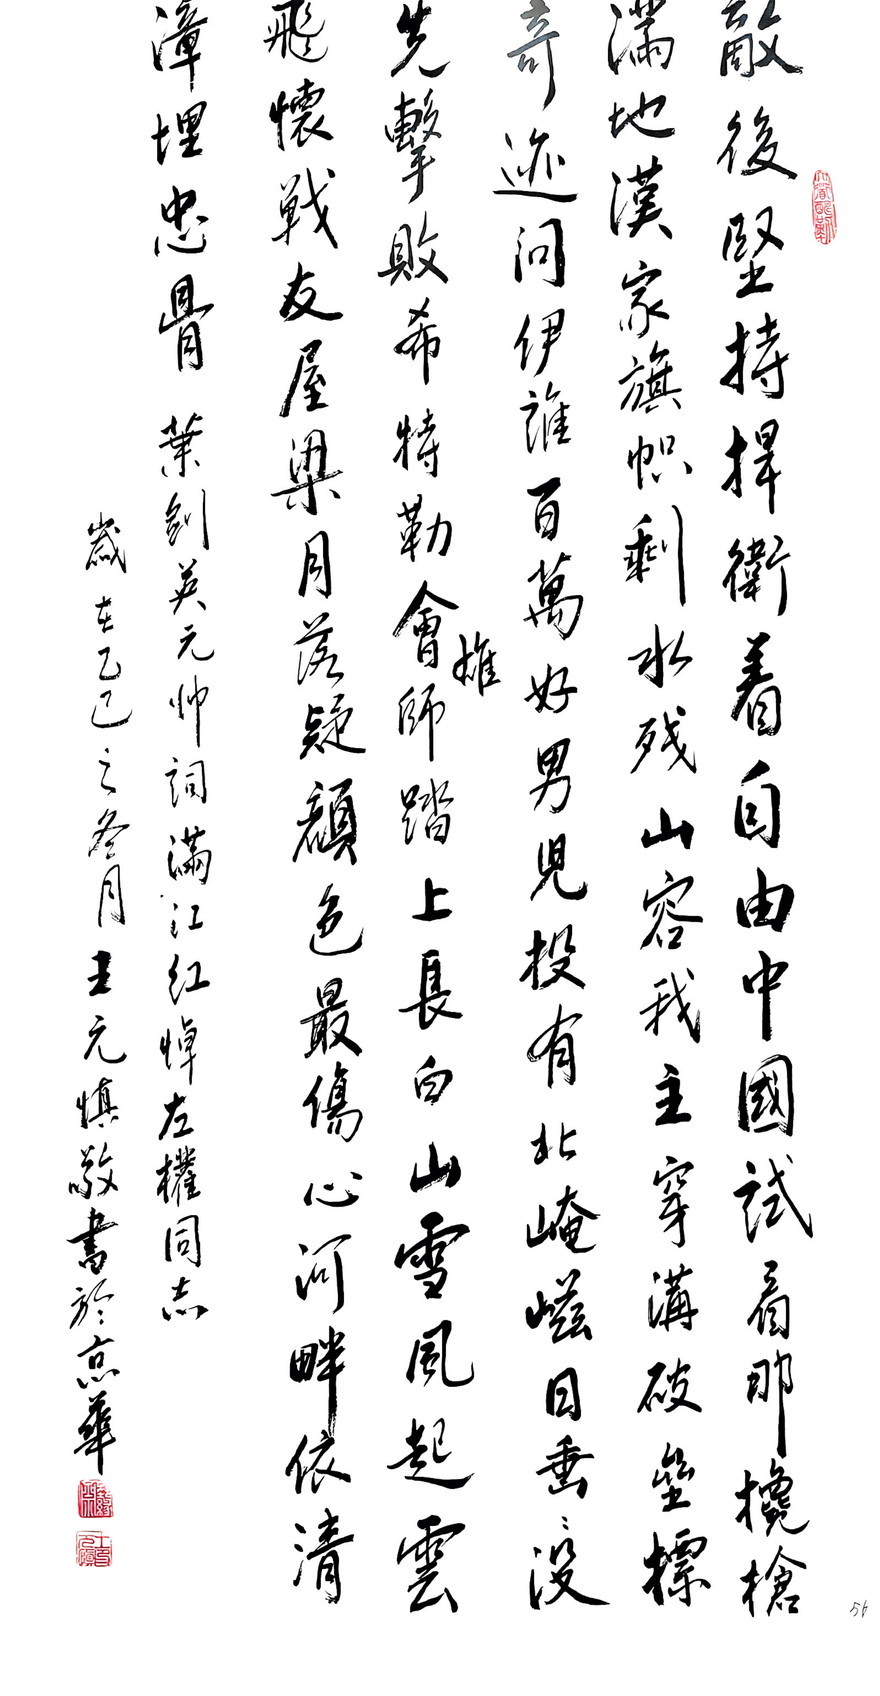 敵後堅持捍衛着自由中國試看那欃槍
滿地漢家旗幟剩水残山容我主穿溝破壘標
奇迹問伊誰百萬好男兒投有北崦嵫日垂垂没
先擊敗希特勒會師踏上長白山雪風起雲
雄
飛懷戰友屋梁月落疑顔色最傷心河畔依清
漳埋忠骨 葉劍英元帅詞滿江红悼左權同志
歲在乙巳之冬月王元慎敬書於京華
56